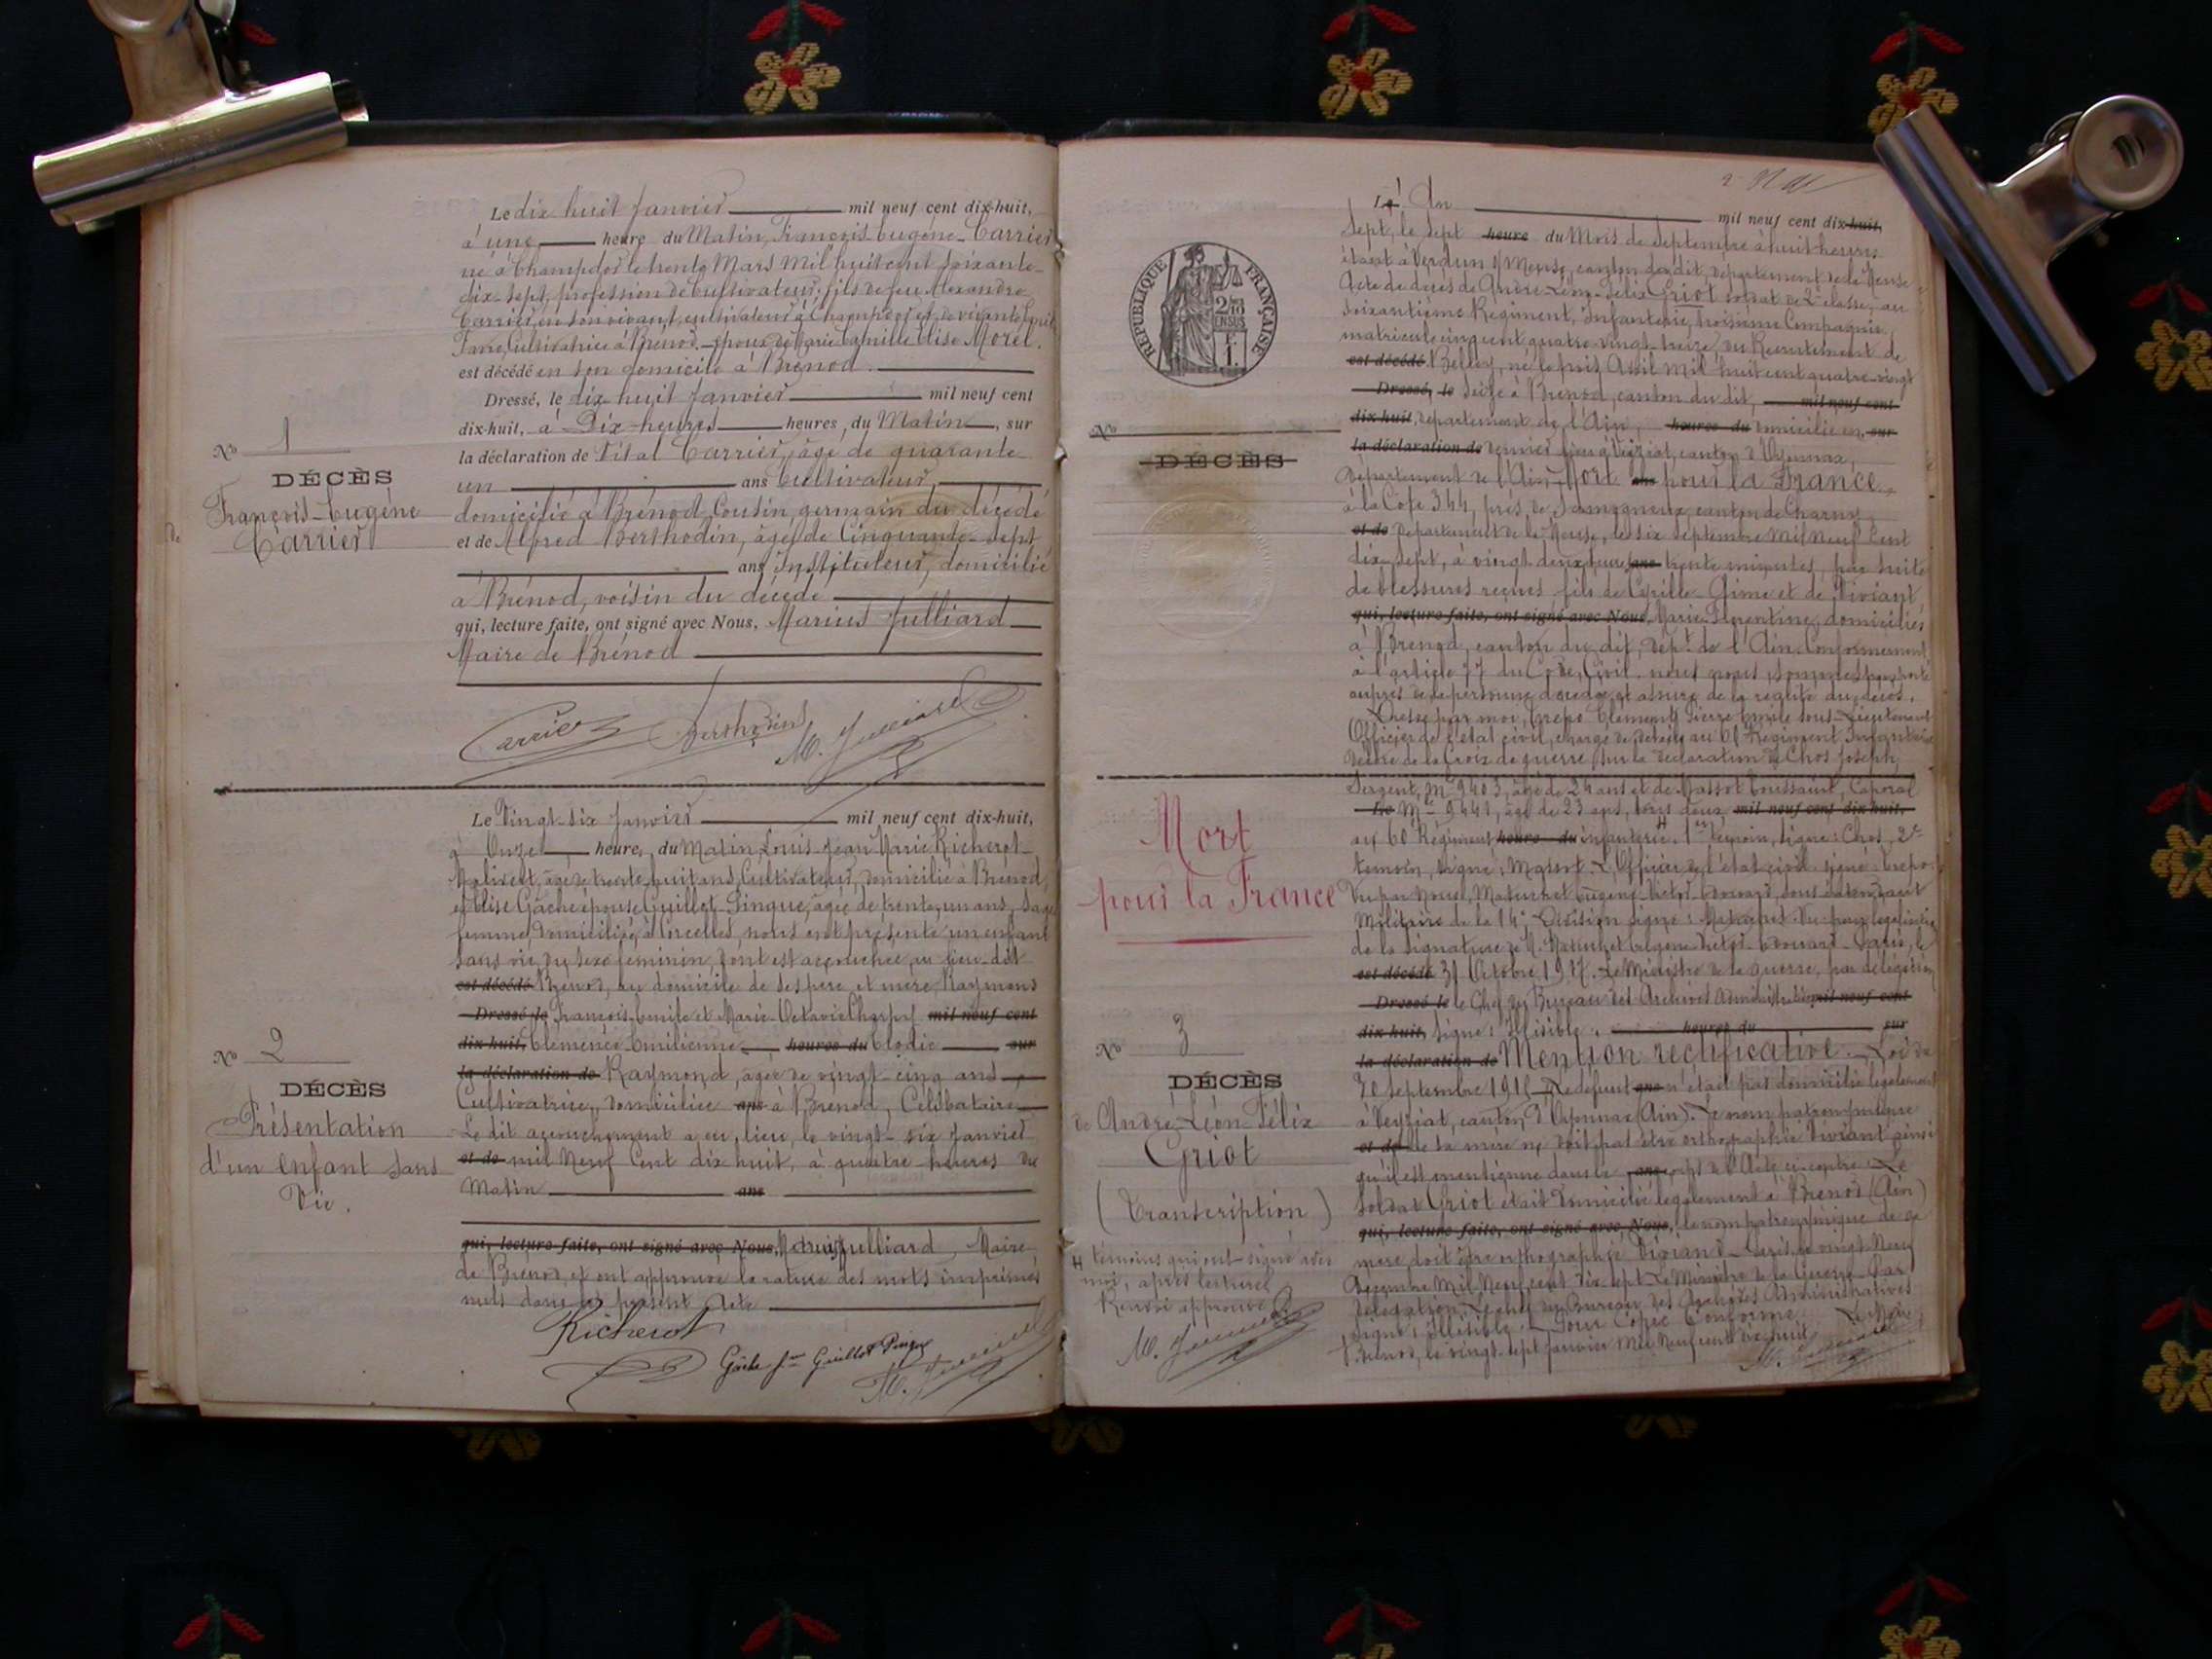 Le dix huit Janvier mil neuf cent dix-huit,
à une heure du Matin, François-Eugène Carrier
né à Champdor le trente Mars mil huit cent soixante-
dix-sept, profession de Cultivateur, fils de feu Alexandre
Carrier, en son vivant, cultivateur à Champdor et de vivante
Cultivatrice à Brénod, époux de Marie Camille Elise Morel.
est décédé en son domicile à Brénod.
Dressé, le dix huit Janvier mil neuf cent
dix-huit, à Dix heures heures, du Matin, sur
la déclaration de Vital Carrier, âgé de quarante
un ans Cultivateur,
domicilié à Brénod, Cousin germain du décédé
et de Alfred Berthodin, âgé de Cinquante-sept
ans Instituteur, domicilié
à Brénod, voisin du décédé
qui, lecture faite, ont signé avec Nous, Marius Julliard
Maire de Brénod
Carrier Berthodin
M. Julliard
No 1
DÉCÈS
de François-Eugène
Carrier
Le Vingt-six Janvier mil neuf cent dix-huit,
à Onze heure, du Matin, Louis-Jean Marie Richerot
âgé de trente-huit ans, Cultivateur, domicilié à Brénod,
et Elise Gâche épouse Guillot-Pingue, âgée de trente-un ans, sage
femme, domiciliée à Corcelles, nous ont présenté un enfant
sans vie, du sexe féminin, dont est accouchée, au lieu-dit
est décédé Brénod, au domicile de ses père et mère Raymond
Dressé le François-Emile et Marie-Octavie mil neuf cent
dix-huit, Clémence Emilienne heures du Elodie sur
la déclaration de Raymond, âgée de vingt-cinq ans
Cultivatrice, domiciliée ans à Brénod, Célibataire
Le dit accouchement a eu lieu, le vingt-six Janvier
et de mil Neuf Cent dix huit, à quatre heures du
Matin ans
qui, lecture faite, ont signé avec Nous, Marius Julliard, Maire
de Brénod, et ont approuvé la rature des mots imprimés
nuls dans le présent Acte
Richerot
Gâche fme Guillot Pingue
M. Julliard
No 2
DÉCÈS
Présentation
d'un Enfant sans
Vie.
L' An mil neuf cent dix-huit,
Sept, le Sept heure du Mois de Septembre à huit heures
étant à Verdun s/ Meuse, canton du dit, département de la Meuse
Acte de décès de André-Léon-Félix Griot soldat de 2e classe, au
soixantième Régiment, Infanterie, troisième Compagnie,
matricule cinq cent quatre-vingt-treize, au Recrutement de
est décédé Belley, né le huit Avril mil huit cent quatre-vingt
Dressé, le seize à Brénod, canton du dit, mil neuf cent
dix-huit, département de l'Ain, heures du domicilié en sur
la déclaration de dernier lieu à Veyziat, canton d'Oyonnax,
Département de l'Ain, Mort ans pour la France
à la Cote 344, près de Samogneux, canton de Charny,
et de Département de la Meuse, le six Septembre Mil Neuf Cent
dix-sept, à vingt deux heures ans trente minutes, par suite
de blessures reçues fils de Cyrille-Aimé et de Viviant
qui, lecture faite, ont signé avec Nous, Marie Florentine, domiciliés
à Brénod, canton du dit, dépt. de l'Ain. Conformément
à l'article 77 du Code Civil, nous nous sommes transporté
auprès de la personne décédée et assuré de la réalité du décès.
Dressé par moi, Crepo Clément Pierre Emile sous-Lieutenant
Officier de l'état civil, chargé des détails au 60 Régiment Infanterie
Décoré de la Croix de guerre, sur la déclaration de Chos Joseph,
Sergent, Mle 9403, âgé de 24 ans et de Massot Toussaint, Caporal
Le Mle 9441, âgé de 23 ans, tous deux mil neuf cent dix-huit,
au 60 Régiment heure du infanterie. 1er témoin, signé: Chos, 2e
témoin, signé: Massot. L'Officier de l'état civil signé: Crepo
Vu par Nous, Mathuret Eugène-Victor-Edouard, sous-intendant
Militaire de la 14e Division signé: Mathuret. Vu pour légalisation
de la signature de M. Mathuret Eugène-Victor-Edouard. Paris, le
est décédé 31 Octobre 1917. Le Ministre de la guerre, par délégation
Dressé le le Chef du Bureau des Archives Administratives mil neuf cent
dix-huit, signé: Illisible. heures du sur
la déclaration de Mention rectificative. Loi du
Le défunt ans n'était pas domicilié légalement
à Veyziat, canton d'Oyonnax (Ain). Le nom patronymique
et de de sa mère ne doit pas être orthographié Viviant ainsi
qu'il est mentionné dans le ans corps de l'Acte ci-contre. Le
soldat Griot était domicilié légalement à Brénod (Ain)
qui, lecture faite, ont signé avec Nous, le nom patronymique de sa
mère doit être orthographié Viviand. Paris, le vingt-Neuf
Décembre Mil Neuf cent dix-sept. Le Ministre de la Guerre. Par
délégation, Le chef du Bureau des Archives Administratives
signé: Illisible. Pour Copie Conforme.
Brénod, le vingt-sept Janvier Mil Neuf cent dix-huit Le Maire
M. Julliard
RÉPUBLIQUE FRANÇAISE
2/10
EN SUS
1 F.
No
DÉCÈS
Mort
pour la France
No 3
DÉCÈS
de André-Léon-Félix
Griot
(Transcription)
H témoins qui ont signé avec
moi, après lecture.
Renvoi approuvé
M. Julliard